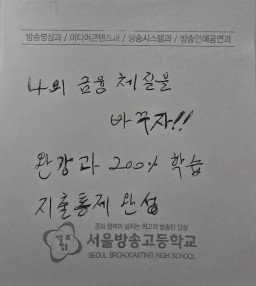 방송영상과 / 미디어콘텐츠과 / 방송시스템과 / 방송연예공연과
나의 금융 체질을
바꾸자!!
완강과 200% 학습
지출통제 완성
꿈과 행복이 넘치는 최고의 방송인 양성
서울방송고등학교
SEOUL BROADCASTING HIGH SCHOOL